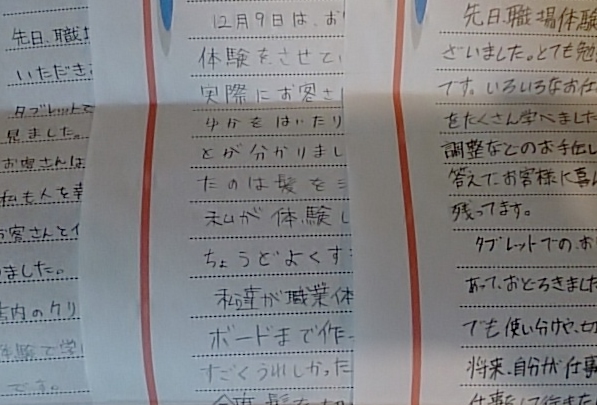 先日、職場
いただき
タブレットで
見ました。
お客さんは
私も人を幸
お客さんとイ
ました。
店内のクリ
体験で学
です。
12月9日は、お
体験をさせてい
実際にお客さ
ゆかをはいたり
とが分かりまし
たのは髪を
私が体験し
ちょうどよくす
私達が職業体
ボードまで作
すごくうれしかった
今度髪を
先日、職場体験
ざいました。とても勉
です。いろいろなお仕
をたくさん学べました
調整などのお手伝い
答えて、お客様に喜ん
残ってます。
タブレットでのお
あって、おどろきました
でも使い分けや、切
将来、自分が仕事
仕事をして行きた